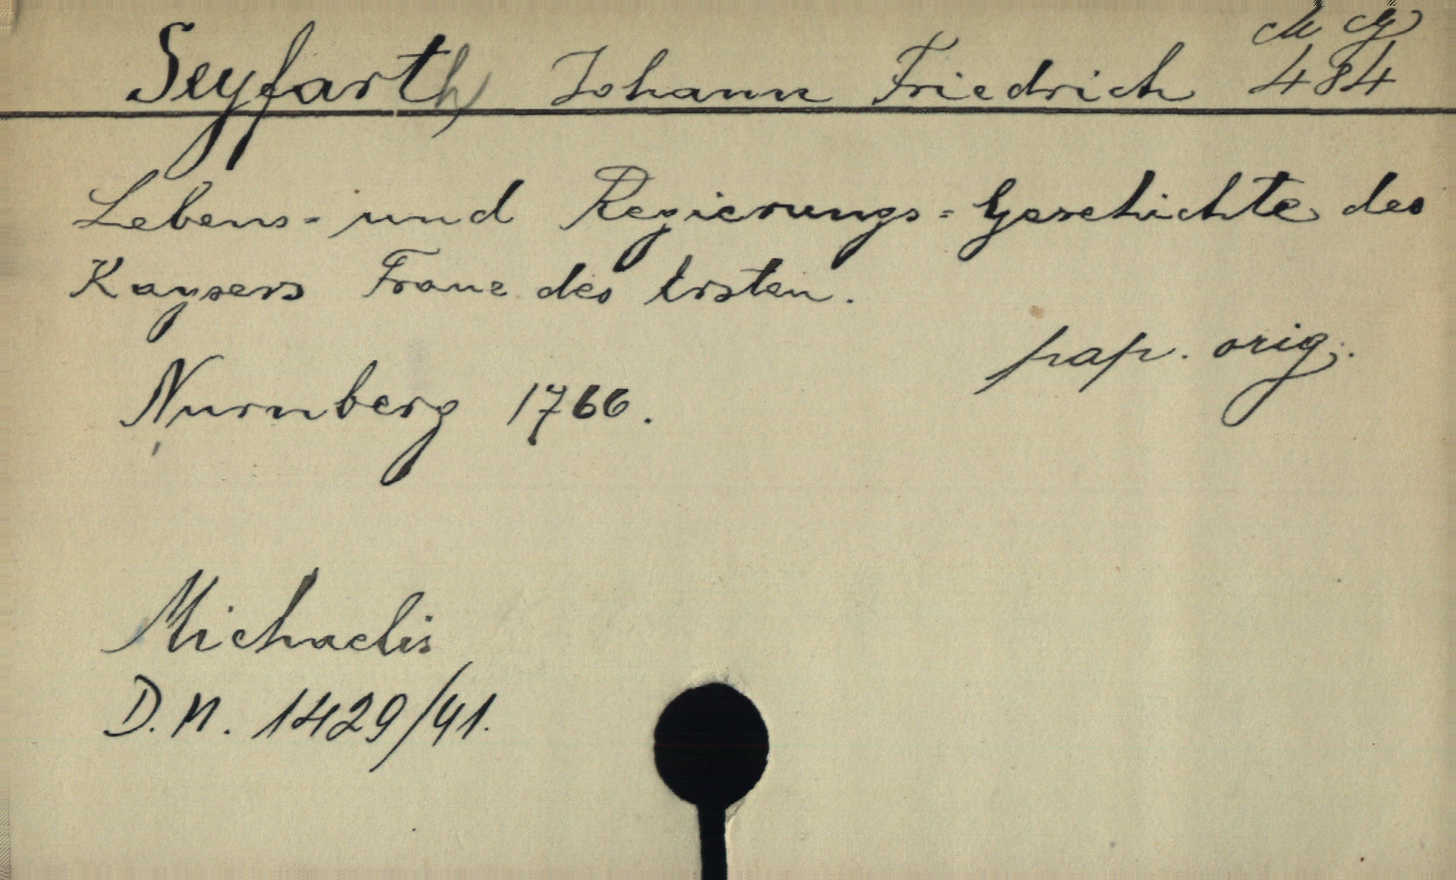 Seyfarth Johann Friedrich
484
Lebens- und Regierungs=Geschichte des
Kaysers Franz des Ersten.
pap. orig.
Nurnberg 1766.
Michaelis
D.N. 1429/41.